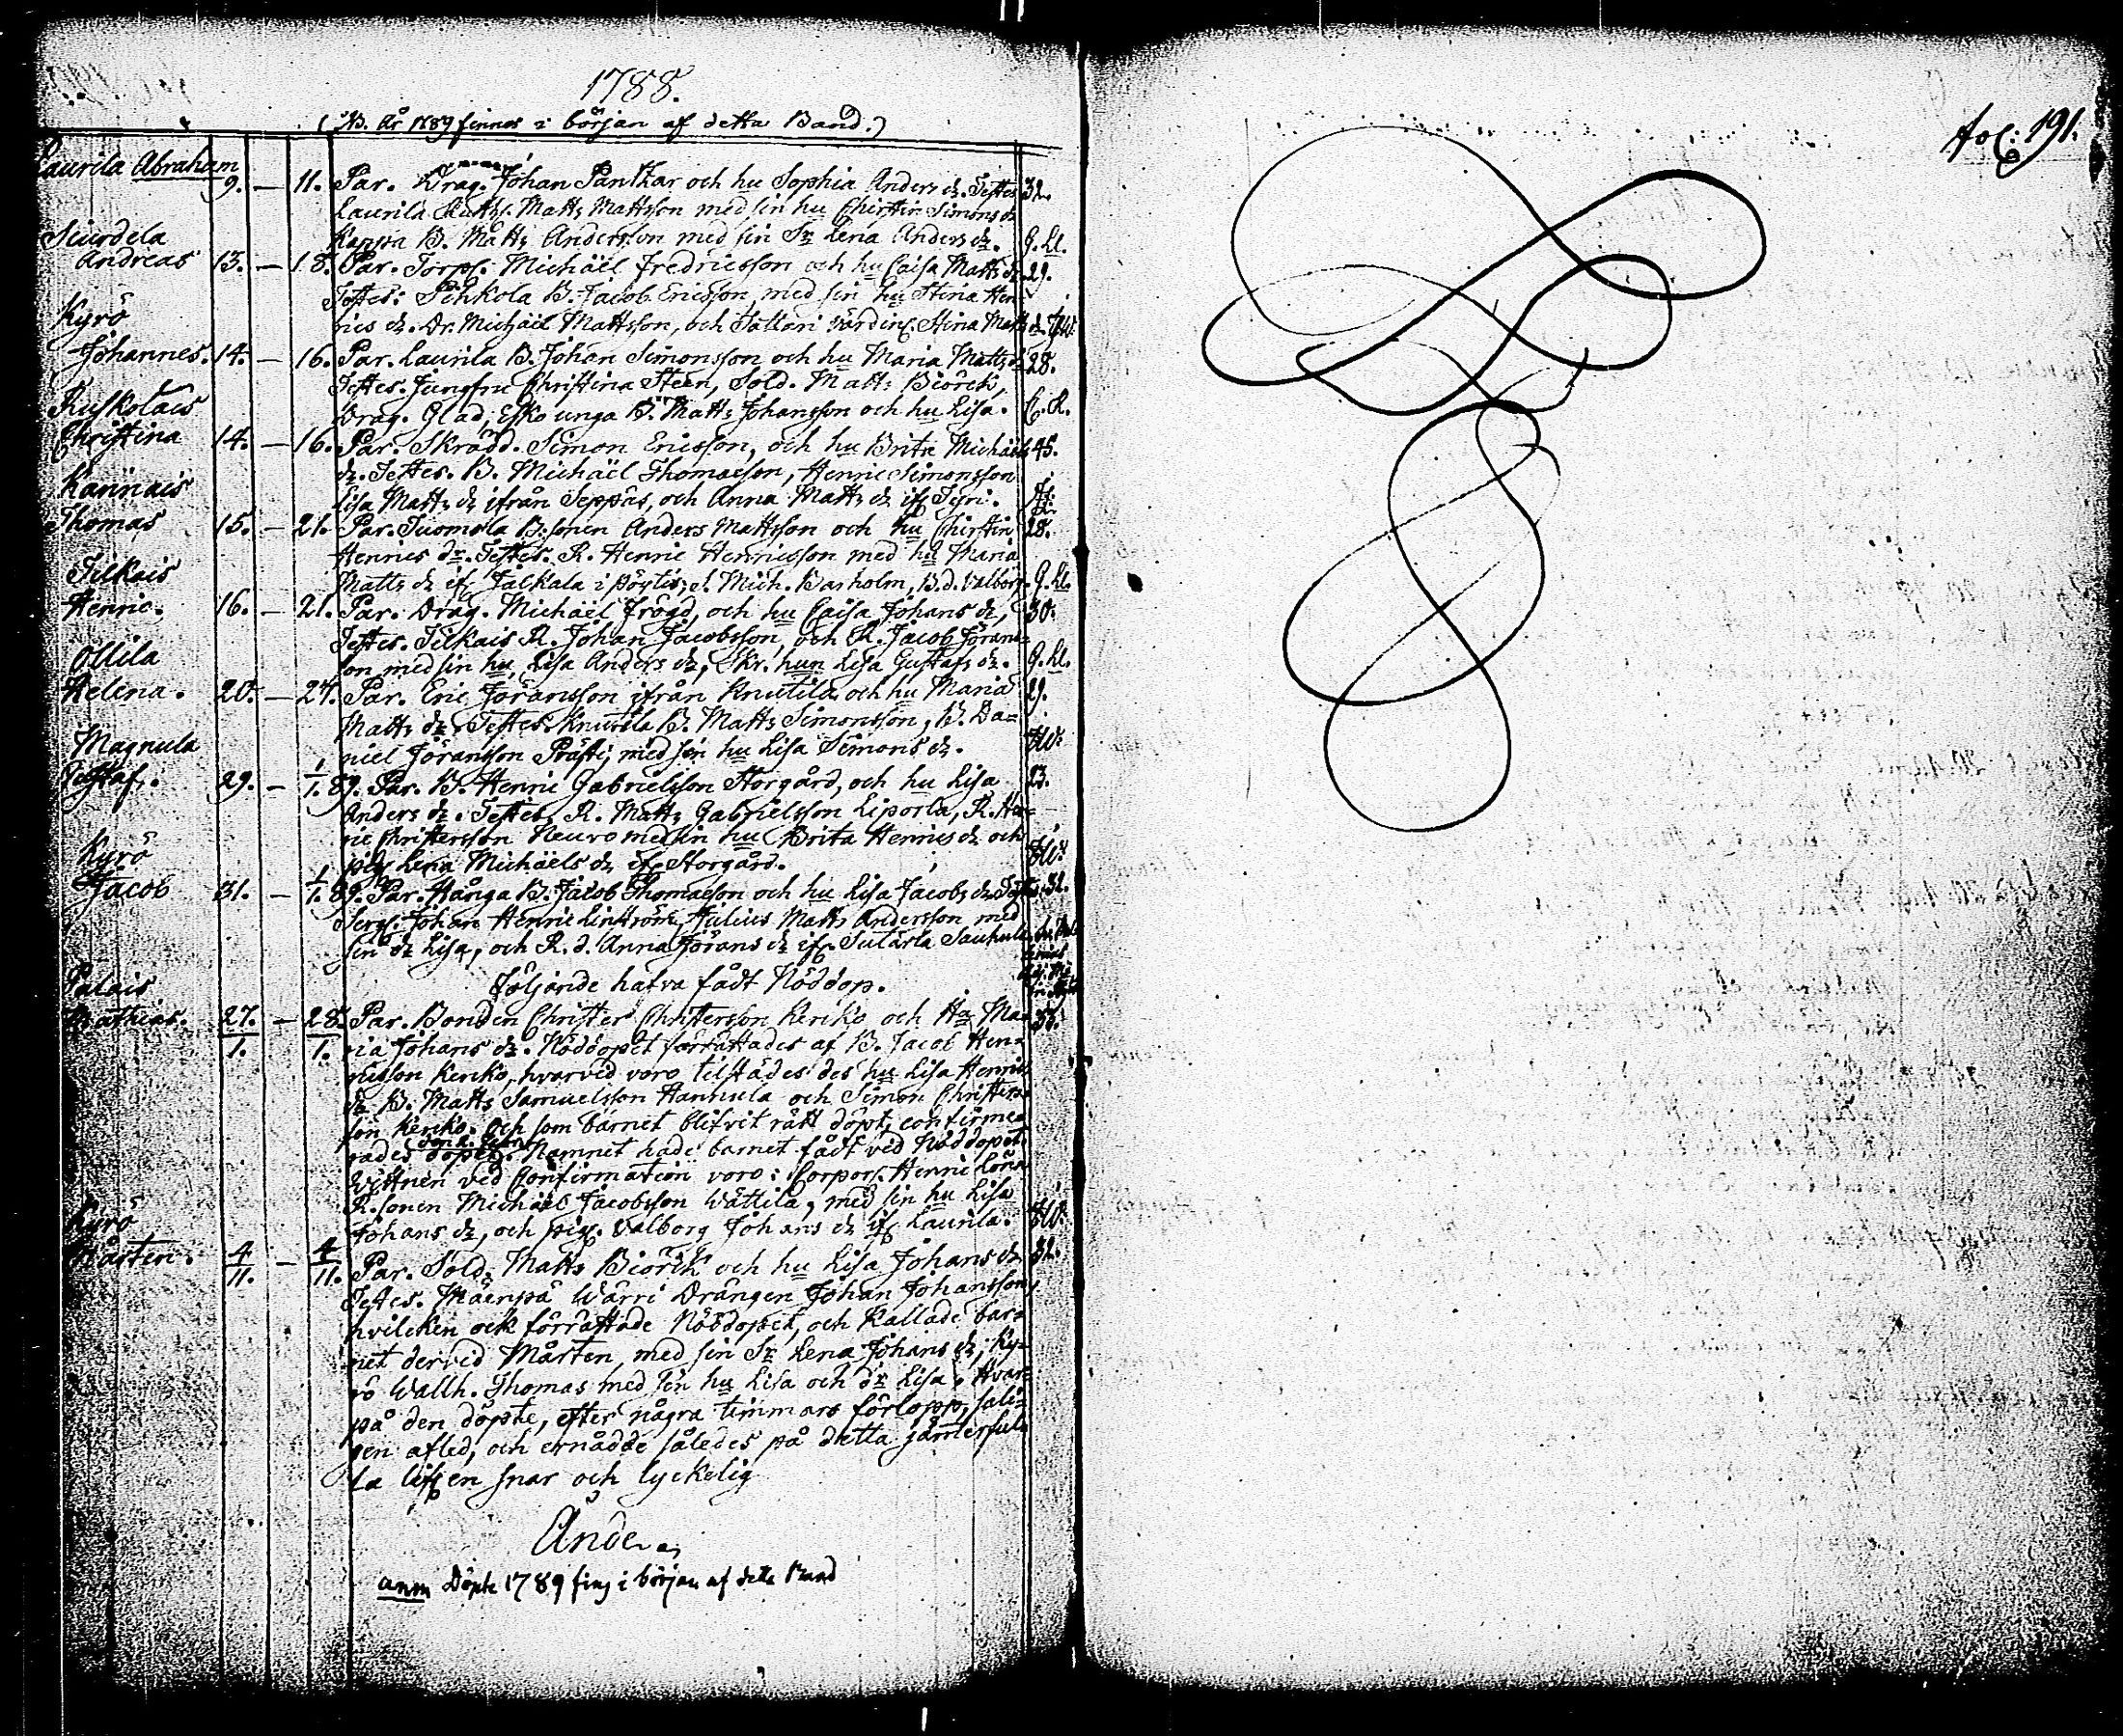 1788.
(NB. År 1789 finnes i början af detta Band.)
fol: 191.
Laurila Abraham 9. — 11. Par. Drag. Johan Panthar och hu Sophia Anders dr. Testes 32.
Laurila Matts Mattsson med sin hu Christin Simons dr
Kappa B. Matts Andersson med sin Sr Lena Anders dr. G. Ll.
Andreas 13. — 18. Par. Torp. Michäel Fredricsson och hu Caisa Matts dr 29.
Testes: Pehkola B. Jacob Ericsson med sin hu Stina Hen-
rics dr. Dr. Michäel Mattsson, och Tattari värdin. Stina Matts dr.
Kyrö
Johannes. 14. — 16. Par. Laurila B. Johan Simonsson och hu Maria Matts dr 28.
Testes. Jungfru Christina Steen, Sold. Matts Biörck,
Drag. Glad, Esko unga B. Matts Johansson och hu Lisa. C. R.
Ruskolais
Christina 14. — 16. Par. Skrädd. Simon Ericsson, och hu Brita Michäels 45.
dr. Testes. B. Michäel Thomasson, Henric Simonsson
Lisa Matts dr ifrån Seppäs, och Anna Matts dr if.
Kännäis
Thomas 15. — 21. Par. Tuomola B:sonen Anders Mattsson och hu Christin 28.
Henrics dr. Testes. R. Henric Henricsson med hu Maria
Matts dr if. Jalkala i Pöytis, Mich. Barholm, B.d. Valborg. G. Ll.
Tilkais
Henric. 16. — 21. Par. Drag. Michäel Frögd, och hu Caisa Johans dr, 30.
Testes. Tilkais R. Johan Jacobsson, och R. Jacob Jörans-
son med sin hu Lisa Anders dr, Skr. hun Lisa Gustafs dr. G. Ll.
Ollila
Helena. 20. — 24. Par. Eric Jöransson ifrån Knutila och hu Maria 29.
Matts dr. Testes. Knutila B. Matts Simonsson, B. Da-
niel Jöransson Prästi, med sin hu Lisa Simons dr.
Magnula
Gustaf. 29. — 1/1. 89. Par. B. Henric Gabrielsson Storgård, och hu Lisa 23.
Anders dr. Testes R. Matts Gabrielsson Liporla, R. Hen-
ric Christersson Neuro med sin hu Brita Henrics dr och
pig. Lena Michäels dr if. Storgård.
Kyrö
Jacob 31. — 1/1. 89. Par. Hånga B. Jacob Thomasson och hu Lisa Jacobs dr Testes. 32.
Serg. Johan Henric Linström, Julius Matts Andersson med
sin dr Lisa, och R. d. Anna Jörans dr if.
Följande hafva fådt Nöddop.
Palais
Mathias. 27./1. — 28./1. Par. Bonden Christer Christersson Keriko och Ha Ma- 33.
ria Johans dr. Nöddopet förrättades af B. Jacob Hen-
ricsson Keriko, hvarvid voro tilstädes des hu Lisa Henrics
dr B. Matts Samuelsson Hannula och Simon Christers-
son Keriko. Och som barnet blifvit rätt döpt, confirme-
rades dopet. Namnet hade barnet fådt ved Nöddopet.
Wittnen ved Confirmation voro: Corpor. Henric Lönn
R.sonen Michäel Jacobsson Wättilä, med sin hu Lisa
Johans dr, och pig. Valborg Johans dr if. Laurila.
Kyrö
Mårten. 4/11. — 4/11. Par. Sold. Matts Biörck och hu Lisa Johans dr 32.
Testes. Mäenpä Wärri Drängen Johan Johansson,
hvilcken ock förrättade Nöddopet, och kallade bar-
net dervid Mårten, med sin Sr Lena Johans dr; Ky-
rö Wallh. Thomas med sin hu Lisa och dr Lisa. Hvar-
på den döpte, efter några timmars förlopp, sali-
gen afled, och ernådde således på detta jämmerful-
la lifsen snar och lyckelig
Ände.
anm Döpte 1789 fins i början af detta Band